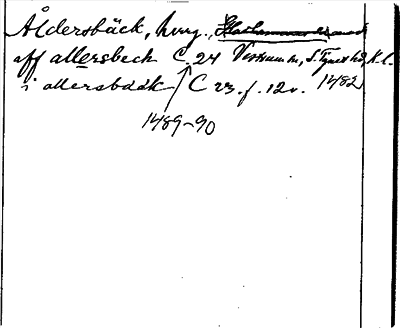 Åldersbäck, herg.,
aff allersbeck C. 24 Vestrum sn, S. Tjust hd, K. l.
i allersbäk C 23. f. 12v. 1482
1489-90